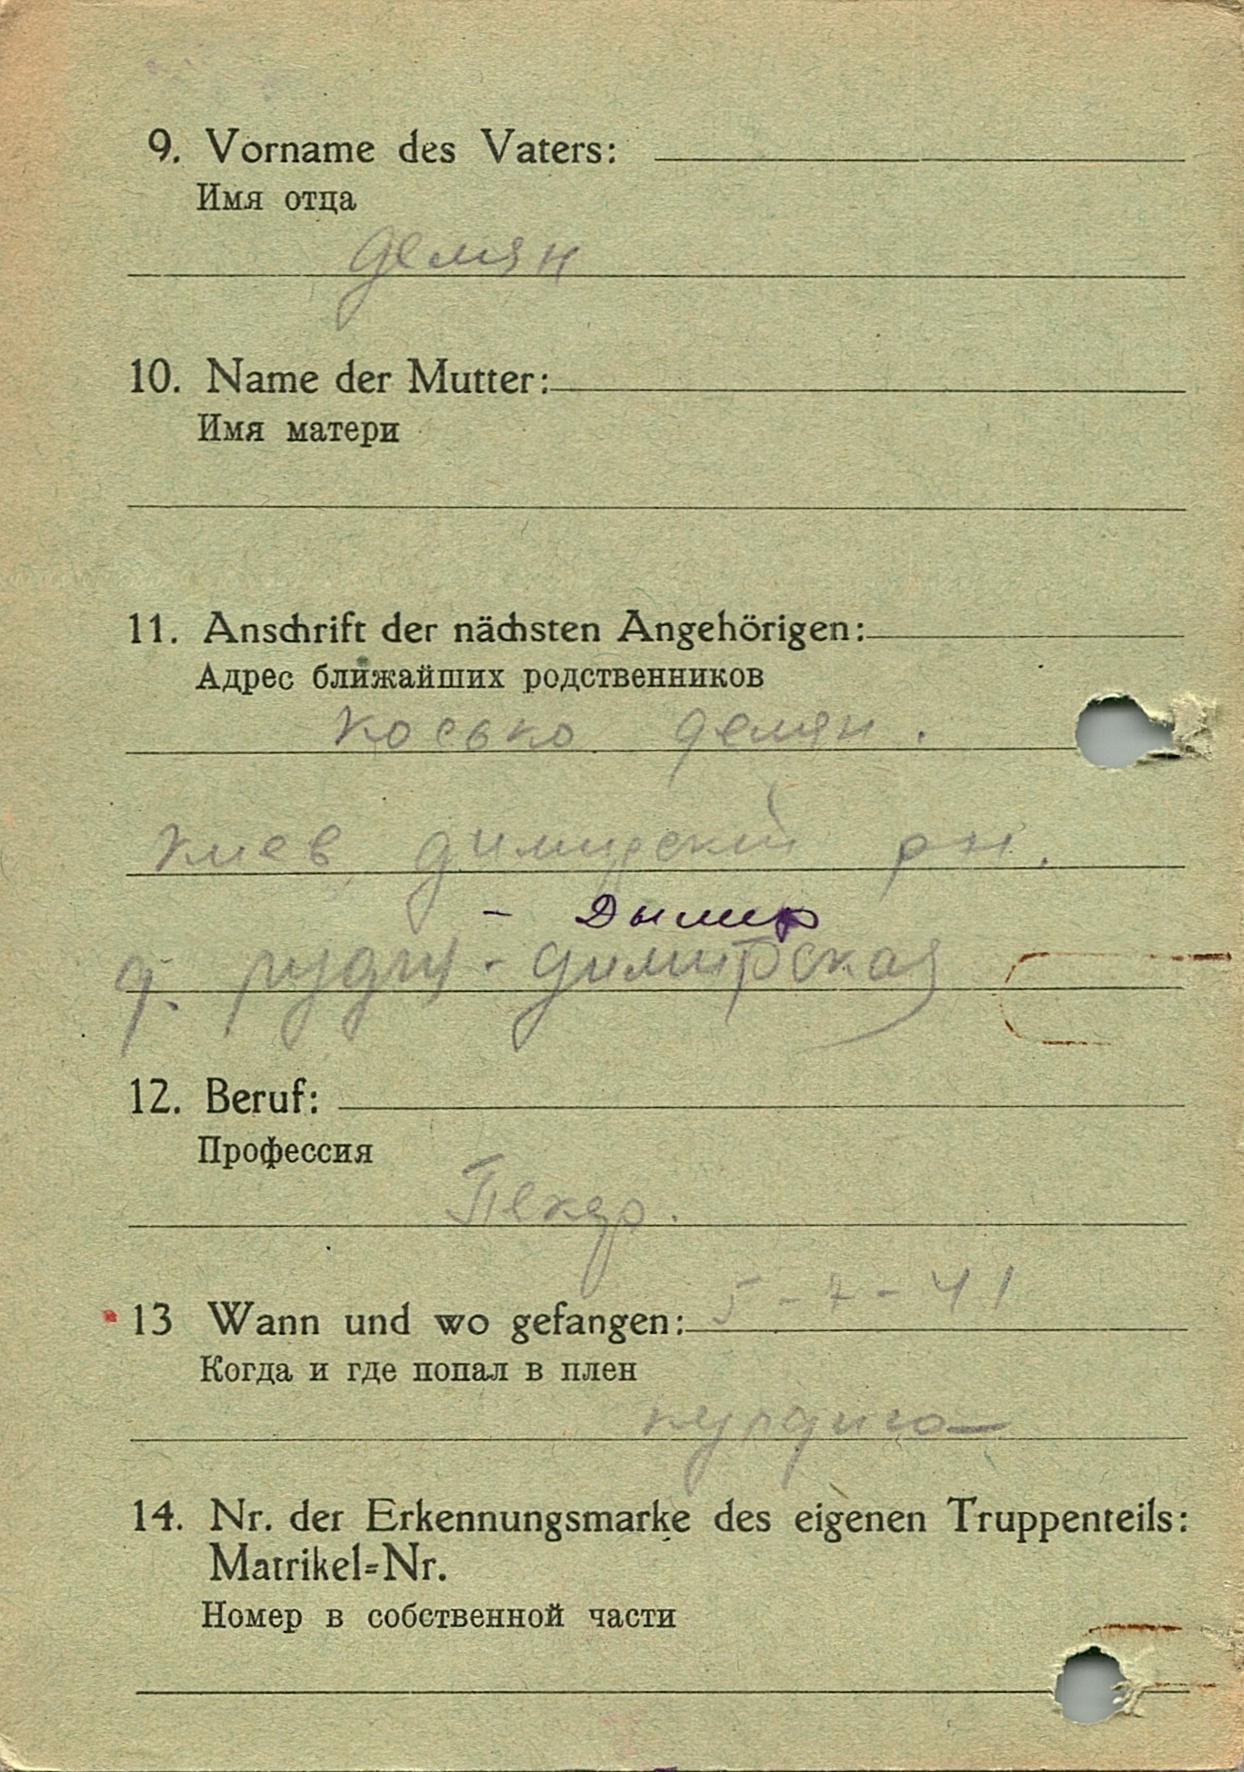 9. Vorname des Vaters:
Имя отца
Демян
10. Name der Mutter:
Имя матери
11. Anschrift der nächsten Angehörigen:
Адрес ближайших родственников
Косько Демян.
Киев димирский рн.
- Дымер
д. Рудня - димирская
12. Beruf:
Профессия
Пекар.
13 Wann und wo gefangen: 5-7-41
Когда и где попал в плен
14. Nr. der Erkennungsmarke des eigenen Truppenteils:
Matrikel=Nr.
Номер в собственной части